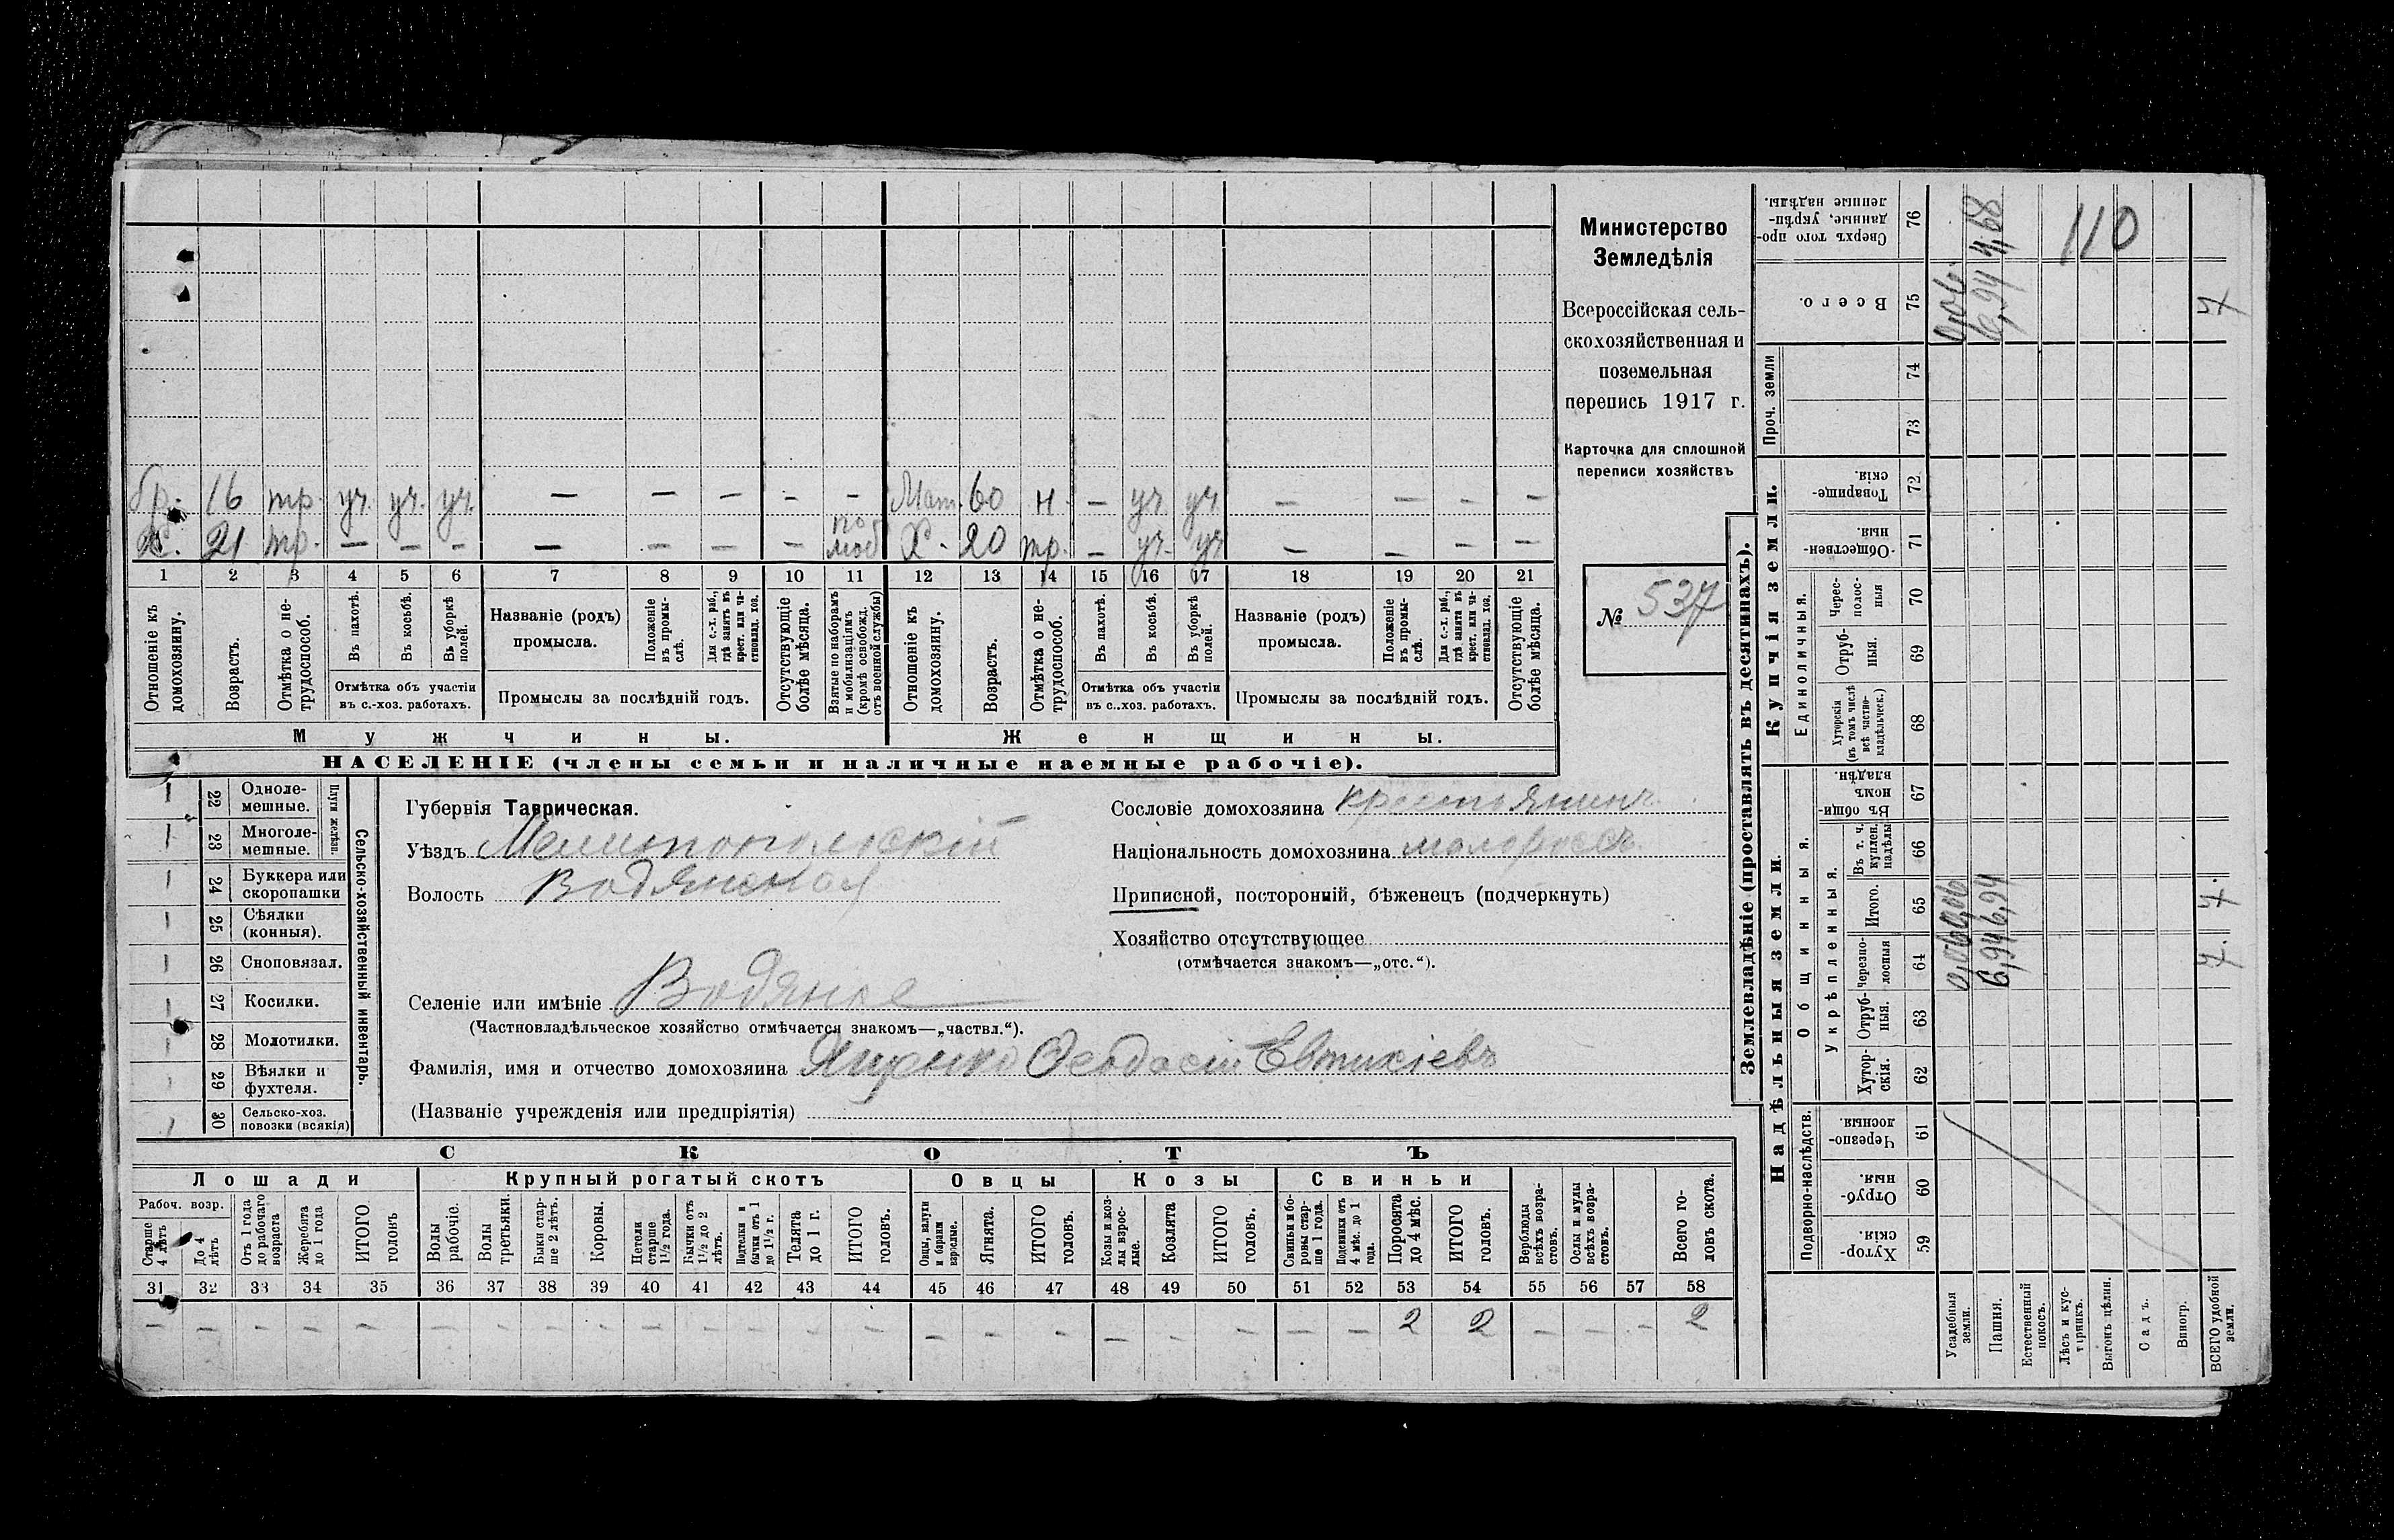 бр. 16 тр. уч. уч. уч. — — — - — Мат. 60 н. — уч. уч. — — — —
Х. 21 тр. — — — — — — — по моб Х. 20 тр. — уч. уч — — — —
1 2 3 4 5 6 7 8 9 10 11 12 13 14 15 16 17 18 19 20 21
Отношеніе къ домохозяину.
Возрастъ.
Отмѣтка о не-
трудоспособ.
Въ пахотѣ.
Въ косьбѣ.
Въ уборкѣ
полей.
Отмѣтка объ участіи
въ с.-хоз. работахъ.
Названіе (родъ)
промысла.
Положеніе
въ промы-
слѣ.
Для с.-х. раб.,
гдѣ занятъ въ
крест. или ча-
стновлад. хоз.
Промыслы за послѣдній годъ.
Отсутствующіе
болѣе мѣсяца.
Взятые по наборамъ
и мобилизаціямъ
(кромѣ освобожд.
отъ военной службы)
Отношеніе къ
домохозяину.
Возрастъ.
Отмѣтка о не-
трудоспособ.
Въ пахотѣ.
Въ косьбѣ.
Въ уборкѣ
полей.
Отмѣтка объ участіи
въ с..хоз. работахъ.
Названіе (родъ)
промысла.
Положеніе
въ промы-
слѣ.
Для с.-х. раб.,
гдѣ занята въ
крест. или ча-
стновлад. хоз.
Промыслы за послѣдній годъ.
Отсутствующіе
болѣе мѣсяца.
Мужчины. Женщины.
НАСЕЛЕНІЕ (члены семьи и наличные наемные рабочіе).
Министерство
Земледѣлія
Всероссійская сель-
скохозяйственная и
поземельная
перепись 1917 г.
Карточка для сплошной
переписи хозяйствъ
№ 537
22 Одноле-
мешные.
23 Многоле-
мешные.
Плуги желѣзн.
24 Буккера или
скоропашки
25 Сѣялки
(конныя).
26 Сноповязал.
27 Косилки.
28 Молотилки.
29 Вѣялки и
фухтеля.
30 Сельско-хоз.
повозки (всякія)
Сельско-хозяйственный инвентарь.
Губернія Таврическая.
Уѣздъ Мелитопольскій
Волость Водянская
Селеніе или имѣніе Водяное
(Частновладѣльческое хозяйство отмѣчается знакомъ—„частвл.“).
Фамилія, имя и отчество домохозяина Яценко Ѳеодосій Евтихіевъ
(Названіе учрежденія или предпріятія)
Сословіе домохозяина крестьянинъ
Національность домохозяина малороссъ
Приписной, посторонній, бѣженецъ (подчеркнуть)
Хозяйство отсутствующее
(отмѣчается знакомъ—„отс.“).
СКОТЪ
Лошади Крупный рогатый скотъ Овцы Козы Свиньи
Рабоч. возр.
Старше
4 лѣтъ
До 4
лѣтъ
Отъ 1 года
до рабочаго
возраста
Жеребята
до 1 года
ИТОГО
головъ
Волы
рабочіе.
Волы
третьяки.
Быки стар-
ше 2 лѣтъ.
Коровы.
Нетели
старше
1½ года.
Бычки отъ
1½ до 2
лѣтъ.
Подтелки и
бычки отъ 1
до 1½ г.
Телята
до 1 г.
ИТОГО
головъ.
Овцы, валухи
и бараны
взрослые.
Ягнята.
ИТОГО
головъ.
Козы и коз-
лы взрос-
лые.
Козлята
ИТОГО
головъ.
Свиньи и бо-
ровы стар-
ше 1 года.
Подсвинки отъ
4 мѣс. до 1
года.
Поросята
до 4 мѣс.
ИТОГО
головъ.
Верблюды
всѣхъ возра-
стовъ.
Ослы и мулы
всѣхъ возра-
стовъ.
Всего го-
ловъ скота.
31 32 33 34 35 36 37 38 39 40 41 42 43 44 45 46 47 48 49 50 51 52 53 54 55 56 57 58
— — — — — — — — — — — — — — — — — — — — — — 2 2 — — — 2
Землевладѣніе (проставлять въ десятинахъ).
Надѣльныя земли. Купчія земли. Проч. земли
Подворно-наслѣдств.
Общинныя.
Укрѣпленныя.
Единоличныя.
Хутор-
скія. 59
Отруб-
ныя. 60
Черезпо-
лосныя 61
Хутор-
скія. 62
Отруб-
ныя. 63
Черезпо-
лосныя 64
Итого. 65
Въ т. ч.
куплен.
надѣлы 66
Въ общи-
номъ
владѣн. 67
Хуторскія
(въ томъ числѣ
всѣ частно-
владѣльческ.) 68
Отруб-
ныя. 69
Черес-
полос-
ныя 70
Обществен-
ныя. 71
Товарище-
скія. 72
73
74
Всего. 75
Сверхъ того про-
данные, укрѣп-
ленные надѣлы. 76
Усадебныя
земли. 0,06 0,06 0,06
Пашня. 6,94 6,94 6,94 4,68
Естественный
покосъ.
Лѣсъ и кус-
тарникъ.
Выгонъ цѣлин.
Садъ.
Виногр.
ВСЕГО удобной
земли. 7. 7. 7
110